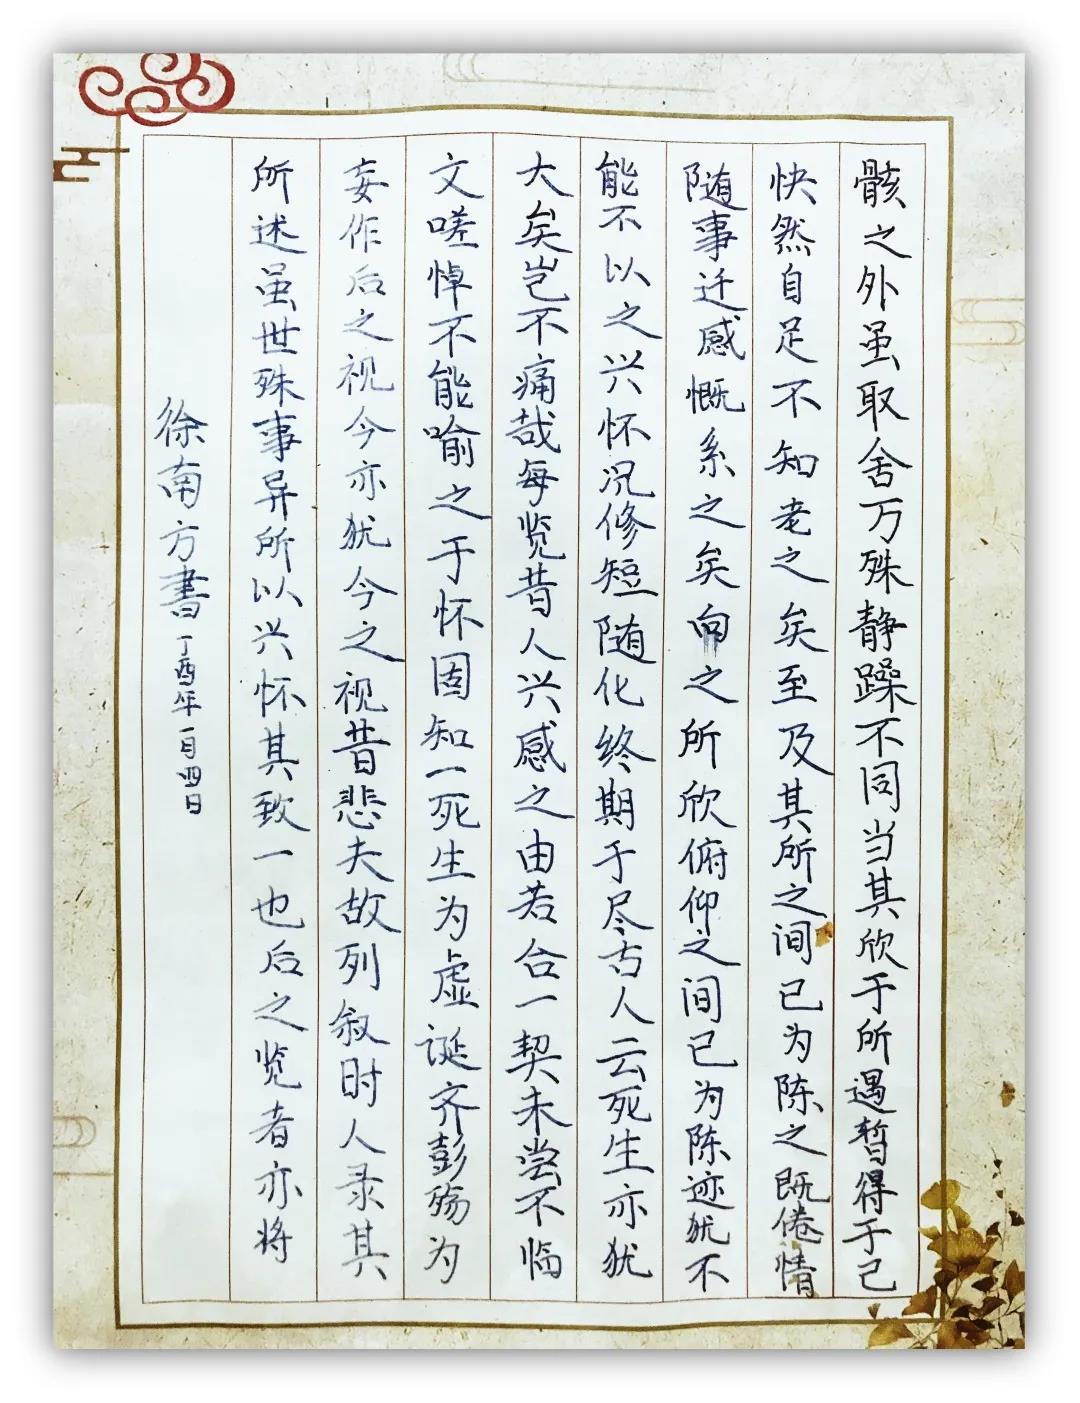 骸之外虽取舍万殊静躁不同当其欣于所遇暂得于己
快然自足不知老之矣至及其所之间已为陈之既倦情
随事迁感慨系之矣向之所欣俯仰之间已为陈迹犹不
能不以之兴怀况修短随化终期于尽古人云死生亦犹
大矣岂不痛哉每览昔人兴感之由若合一契未尝不临
文嗟悼不能喻之于怀固知一死生为虚诞齐彭殇为
妄作后之视今亦犹今之视昔悲夫故列叙时人录其
所述虽世殊事异所以兴怀其致一也后之览者亦将
徐南方書丁酉年一月四日